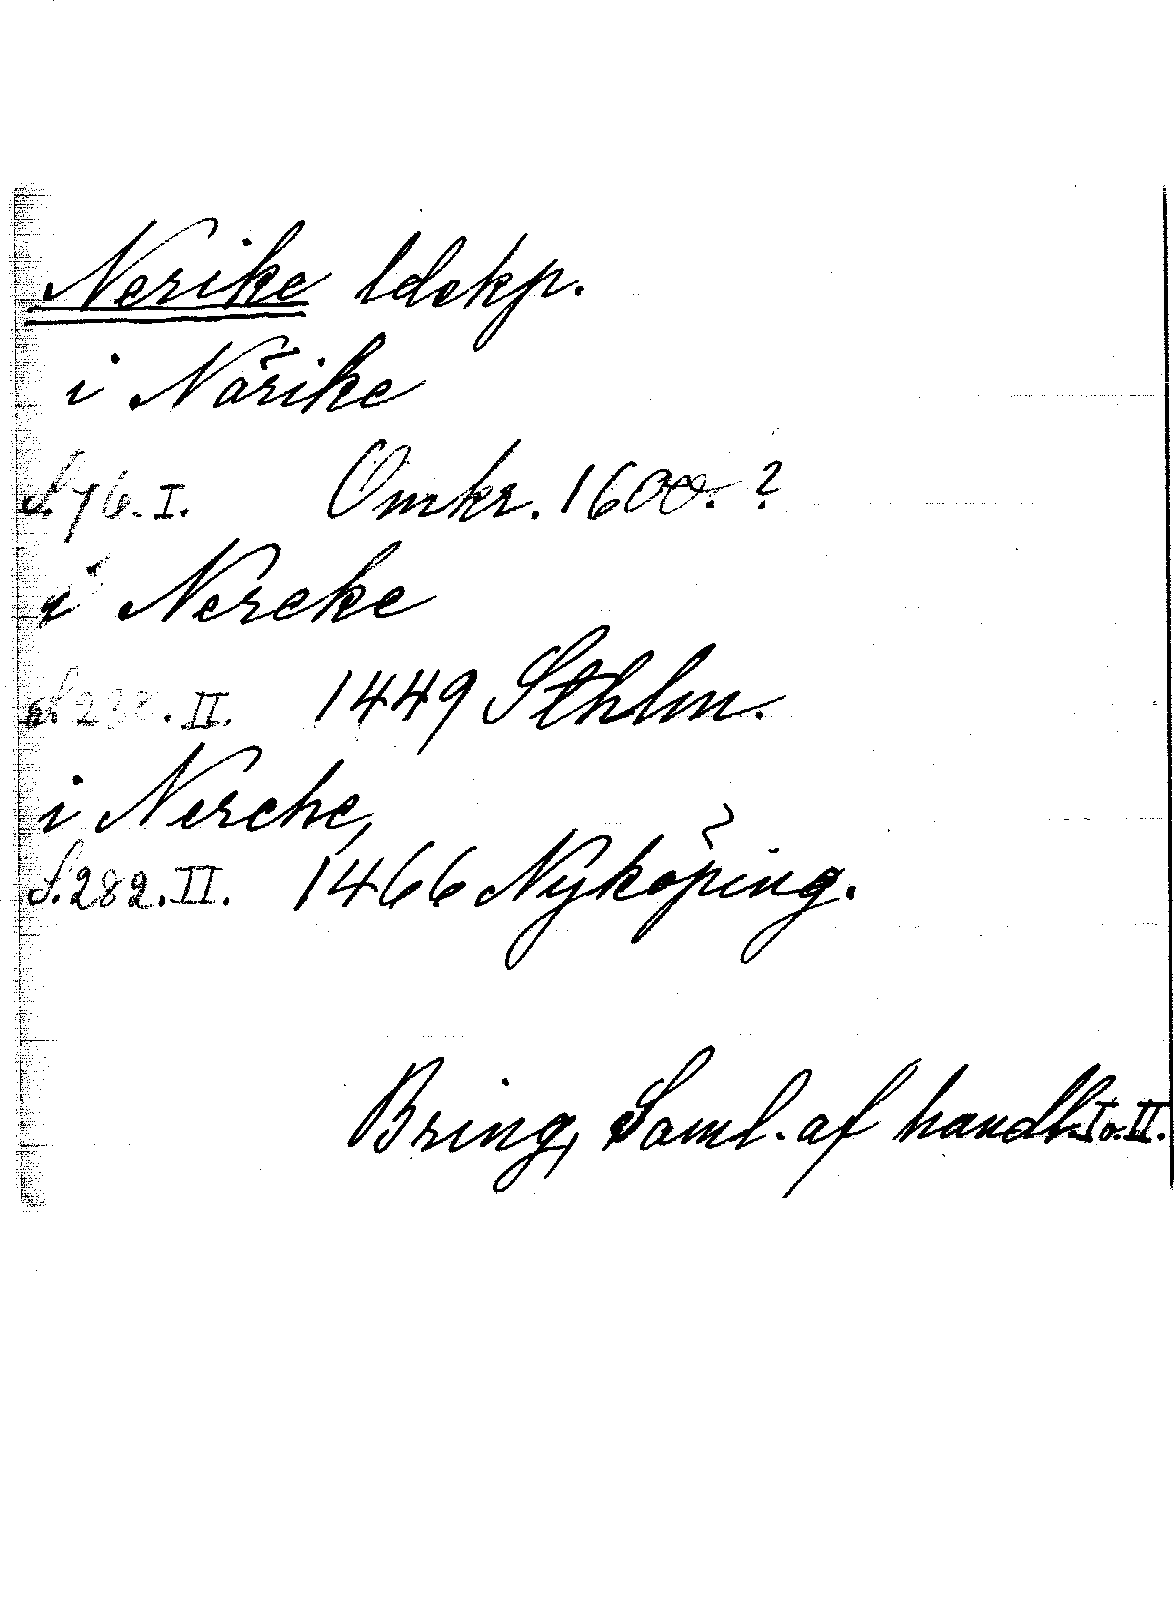 Nerike ldskp.
i Närike
S. 76. I. Omkr. 1600. ?
i Nereke
S. 238. II. 1449 Sthlm.
i Nerche,
S. 282. II. 1466 Nyköping.
Bring, Saml. af handl. I o. II.